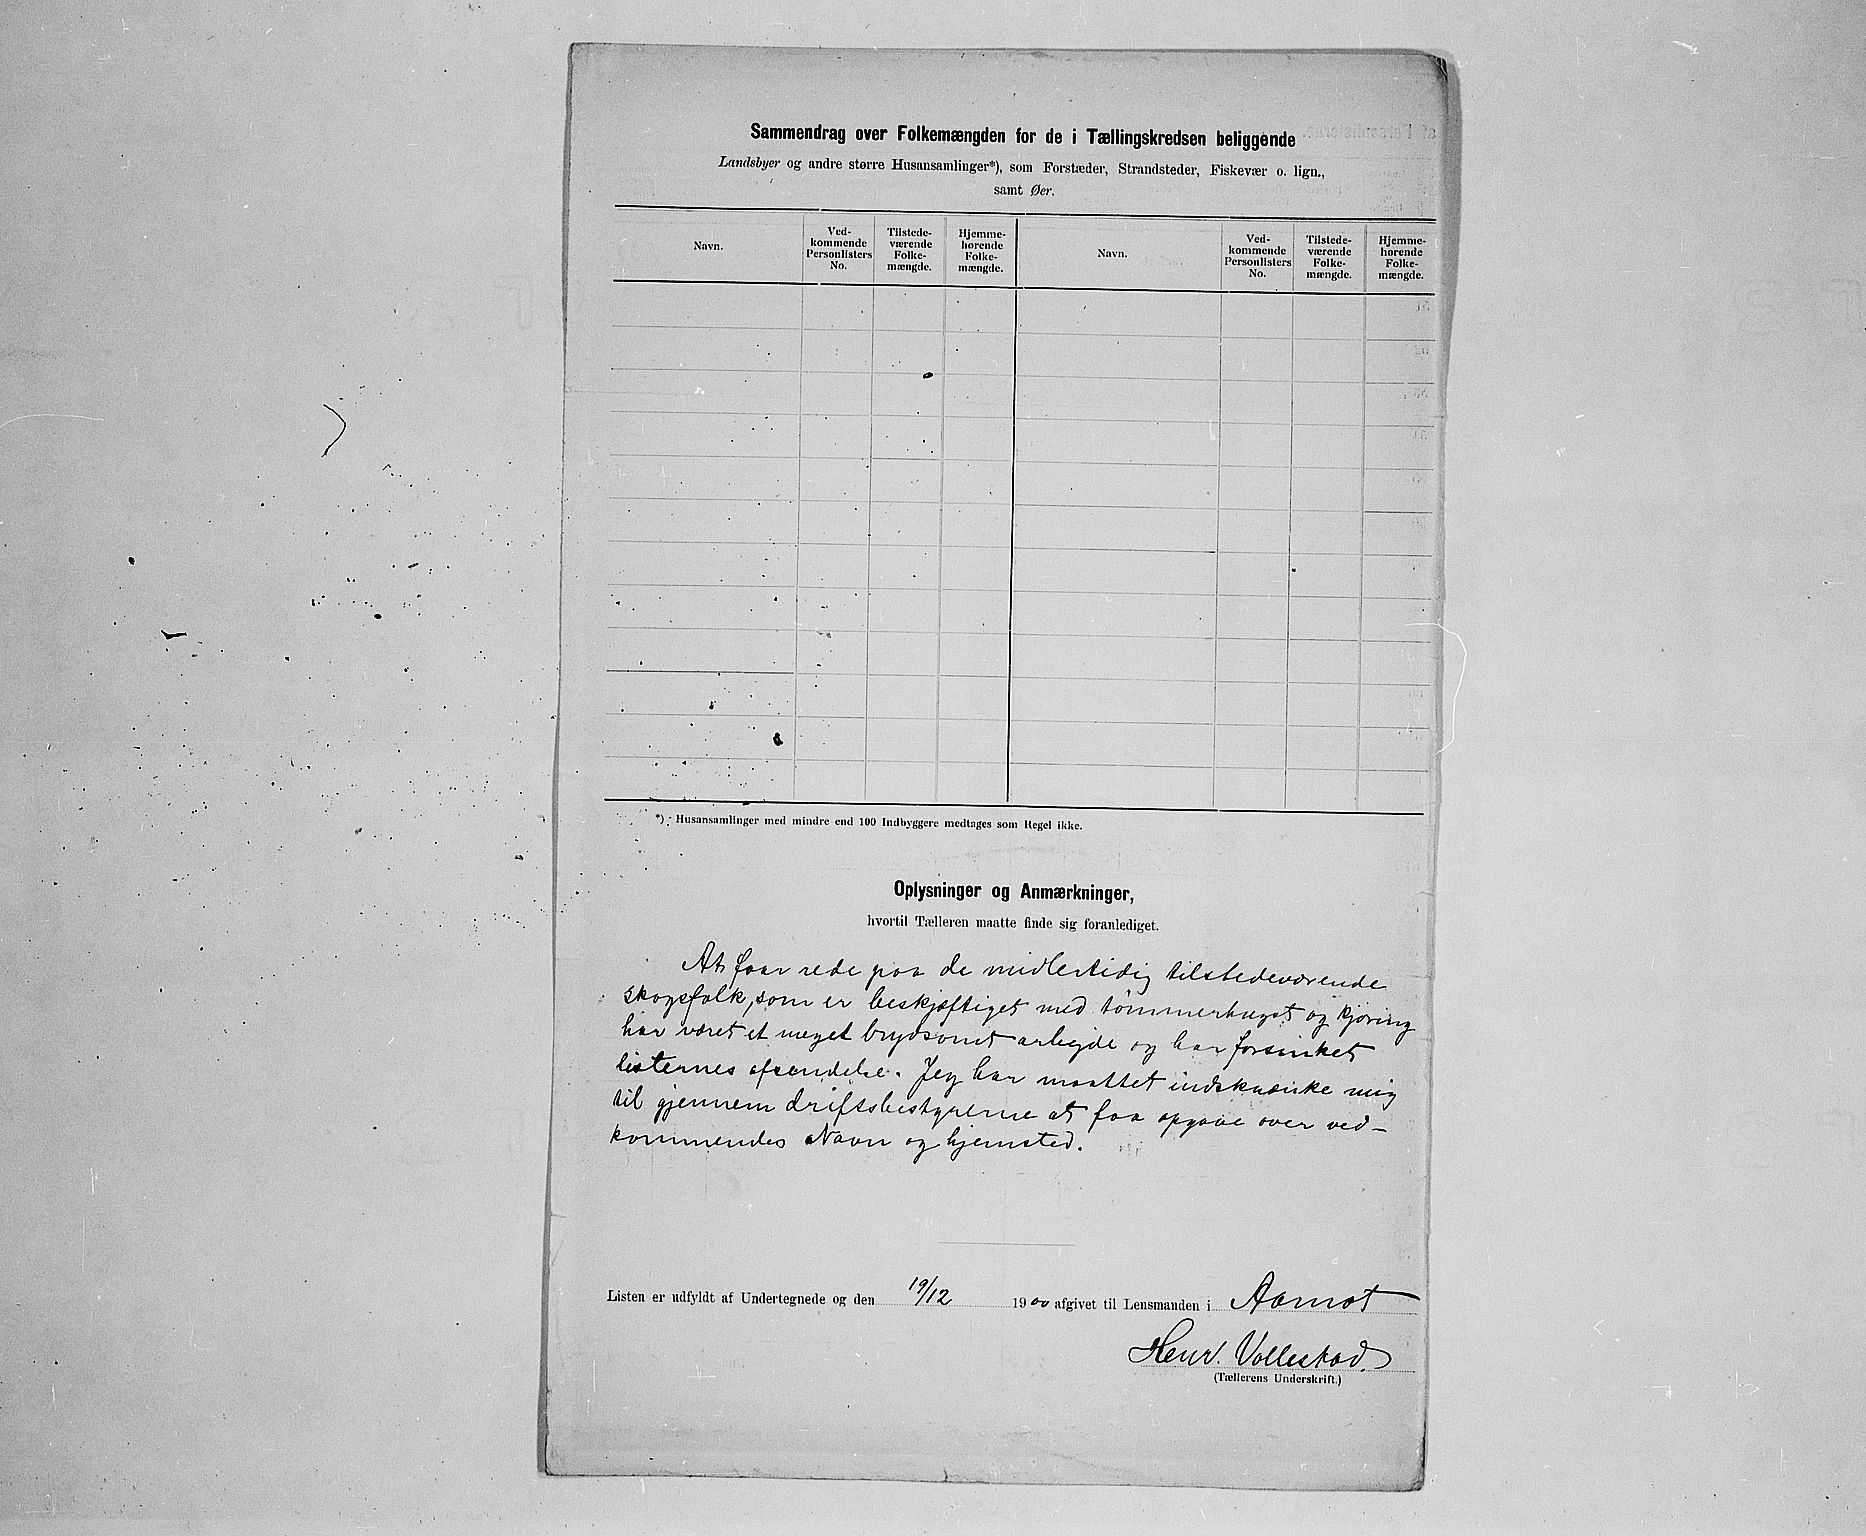 Sammendrag over Folkemængden for de i Tællingskredsen beliggende
Landsbyer og andre større Husansamlinger*), som Forstæder, Strandsteder, Fiskevær o. lign.,
samt Øer.
Navn.
Ved-
kommende
Personlisters
No.
Tilstede-
værende
Folke-
mængde.
Hjemme-
hørende
Folke-
mængde.
Navn.
Ved-
kommende
Personlisters
No.
Tilstede-
værende
Folke-
mængde.
Hjemme-
hørende
Folke-
mængde.
*) Husansamlinger med mindre end 100 Indbyggere medtages som Regel ikke.
Oplysninger og Anmærkninger,
hvortil Tælleren maatte finde sig foranlediget.
At faar rede paa de midlertidig tilstedeværende
skogsfolk, som er beskjæftiget med tømmerhugst og kjøring
har været et meget brydsomt arbejde og har forsinket
listernes afsendelse. Jeg har maattet indskrænke mig
til gjennem driftsbestyrerne at faa opgave over ved-
kommendes Navn og hjemsted.
Listen er udfyldt af Undertegnede og den 19/12 1900 afgivet til Lensmanden i Aamot
Henr. Vollestad.
(Tællerens Underskrift.)